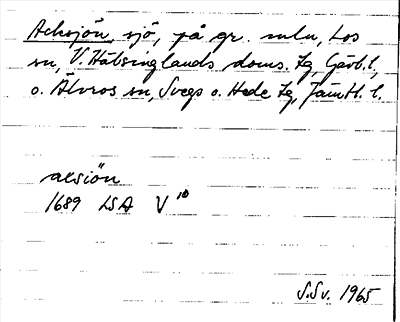 Acksjön, sjö, på gr. mln, Los
sn, V. Hälsinglands doms. tg, Gävl. l,
o. Älvros sn, Svegs o. Hede tg, Jämtl. l.
aksiön
1689 LSA V 10
S.Sv. 1965